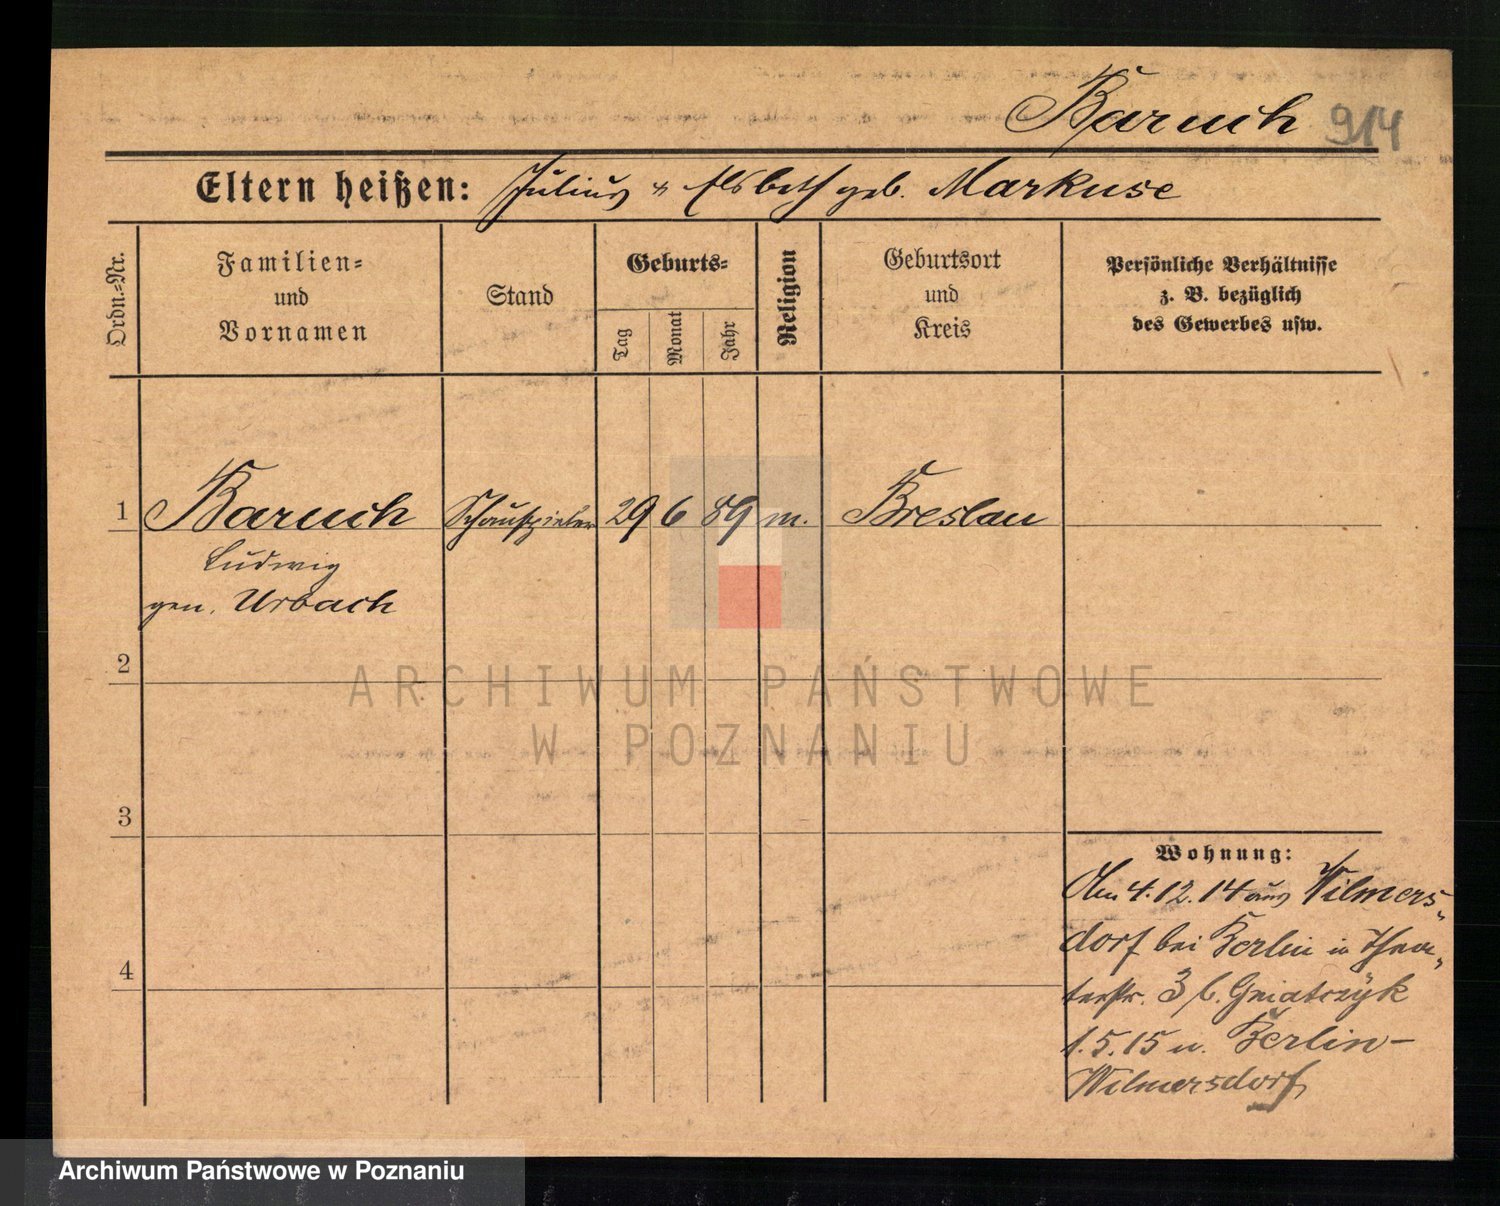 Baruch 914
Eltern heißen: Julius u Elsbeth geb. Markuse
Ordn.-Nr.
Familien-
und
Vornamen
Stand
Geburts-
Tag
Monat
Jahr
Religion
Geburtsort
und
Kreis
Persönliche Verhältnisse
z. B. bezüglich
des Gewerbes usw.
1 Baruch Schauspieler 29 6 89 m. Breslau
Ludwig
gen. Urbach
2
ARCHIWUM PAŃSTWOWE
W POZNANIU
3
Wohnung:
Am 4.12.14 aus Wilmers-
dorf bei Berlin in Thea-
terstr. 3 b. Gniatczyk
1.5.15 n. Berlin-
Wilmersdorf
4
Archiwum Państwowe w Poznaniu